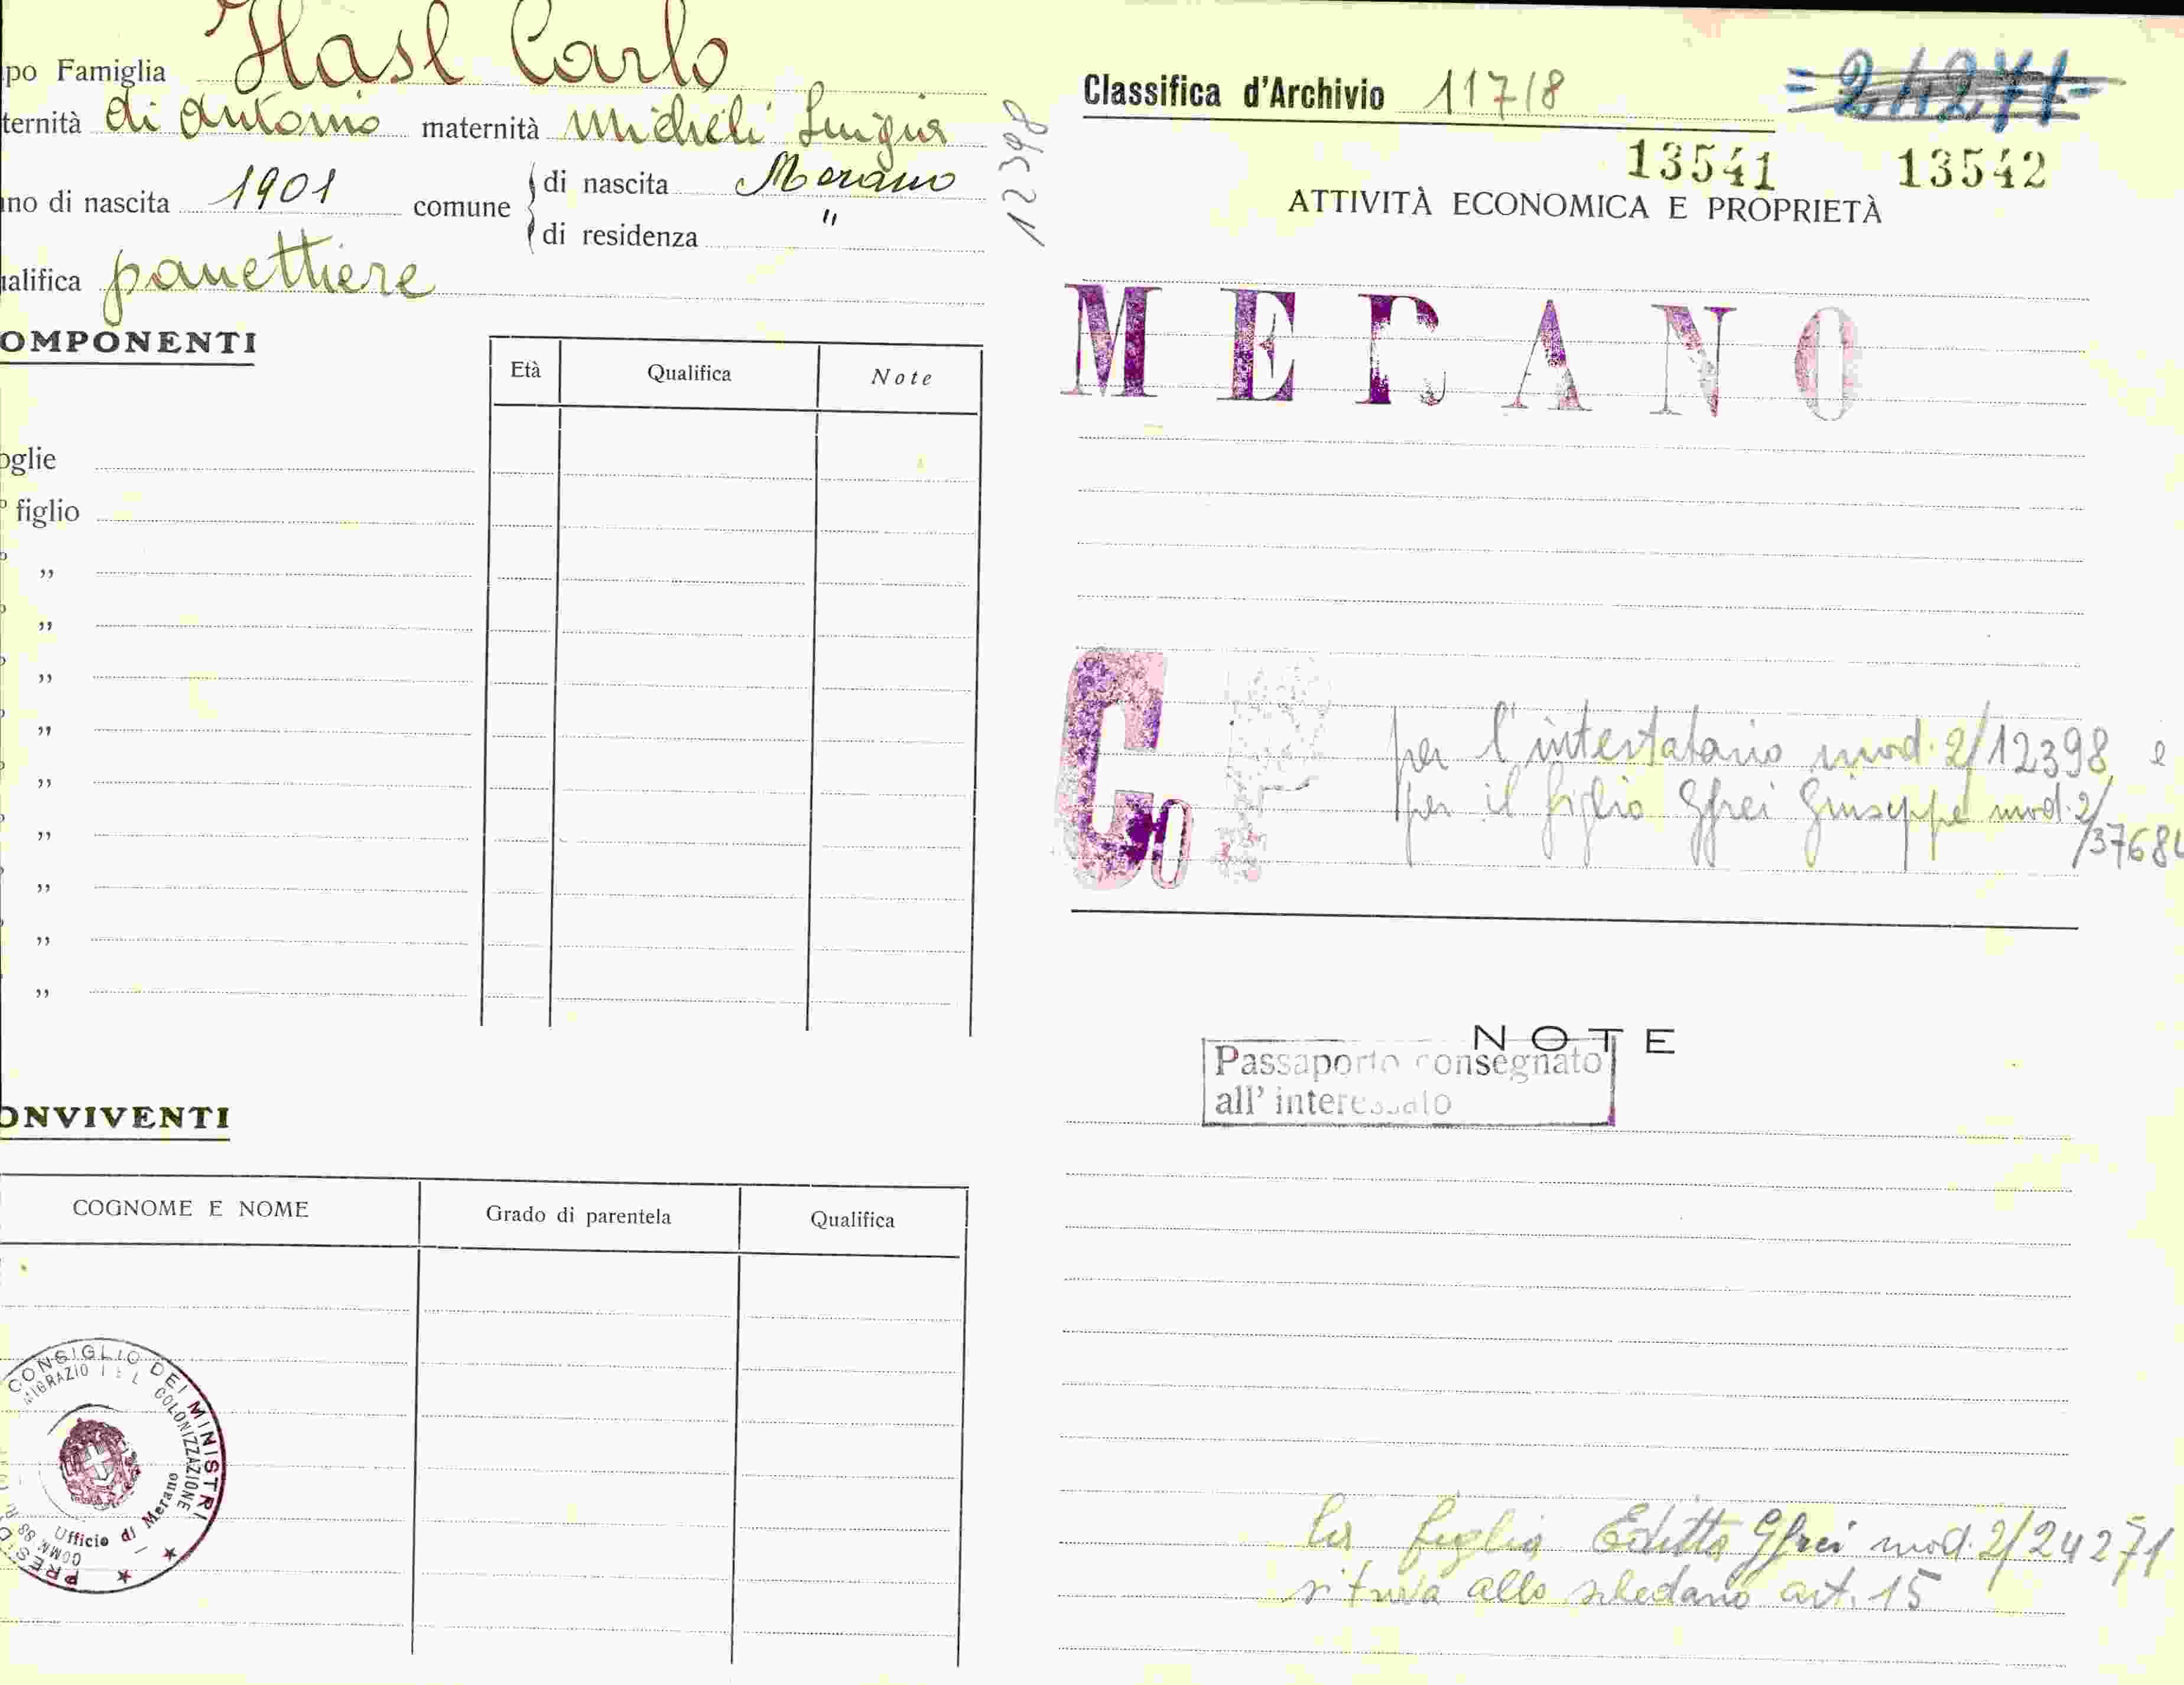 po Famiglia Hasl Carlo
ternità di Antonio maternità Micheli Luigia
no di nascita 1901 comune di nascita Merano
di residenza "
alifica panettiere
OMPONENTI
Età Qualifica Note
oglie
figlio
"
"
"
"
"
"
"
"
"
ONVIVENTI
COGNOME E NOME Grado di parentela Qualifica
CONSIGLIO DEI MINISTRI
COLONIZZAZIONE
Ufficio di Merano
12398
Classifica d'Archivio 117/8 24271
13541 13542
ATTIVITÀ ECONOMICA E PROPRIETÀ
MERANO
Co
per l'intestatario mod. 2/12398 e
per il figlio Gfrei Giuseppe mod. 2/
NOTE
Passaporto consegnato
all' interessato
La figlia Editta Gfrei mod. 2/24271
si trova allo schedario art. 15